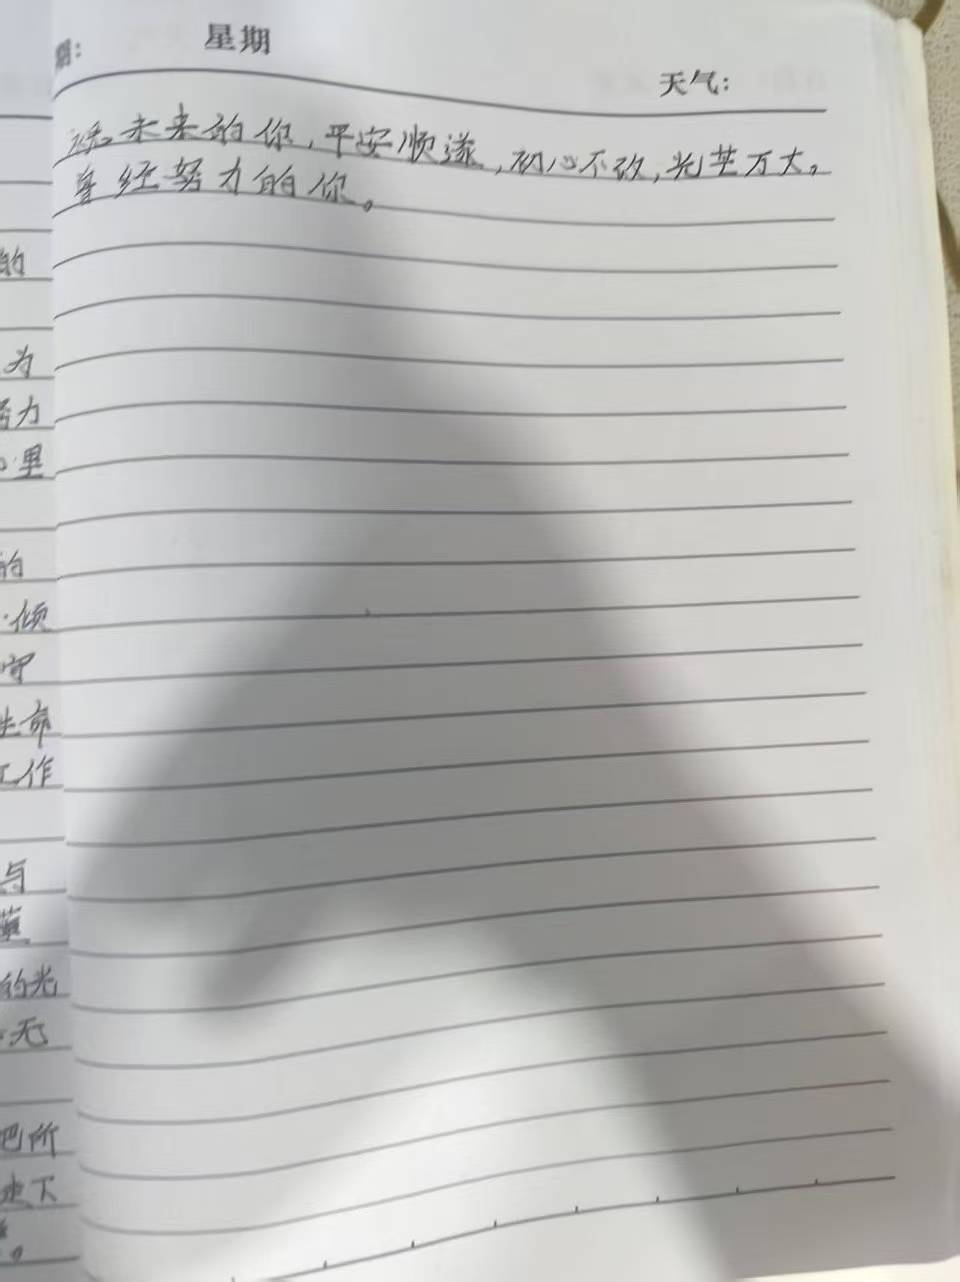 期：
星期
天气：
愿未来的你，平安顺遂，初心不改，光芒万丈。
曾经努力的你。
的
为
努力
里
的
倾
守
生命
工作
与
的光
无
把所
走下
。